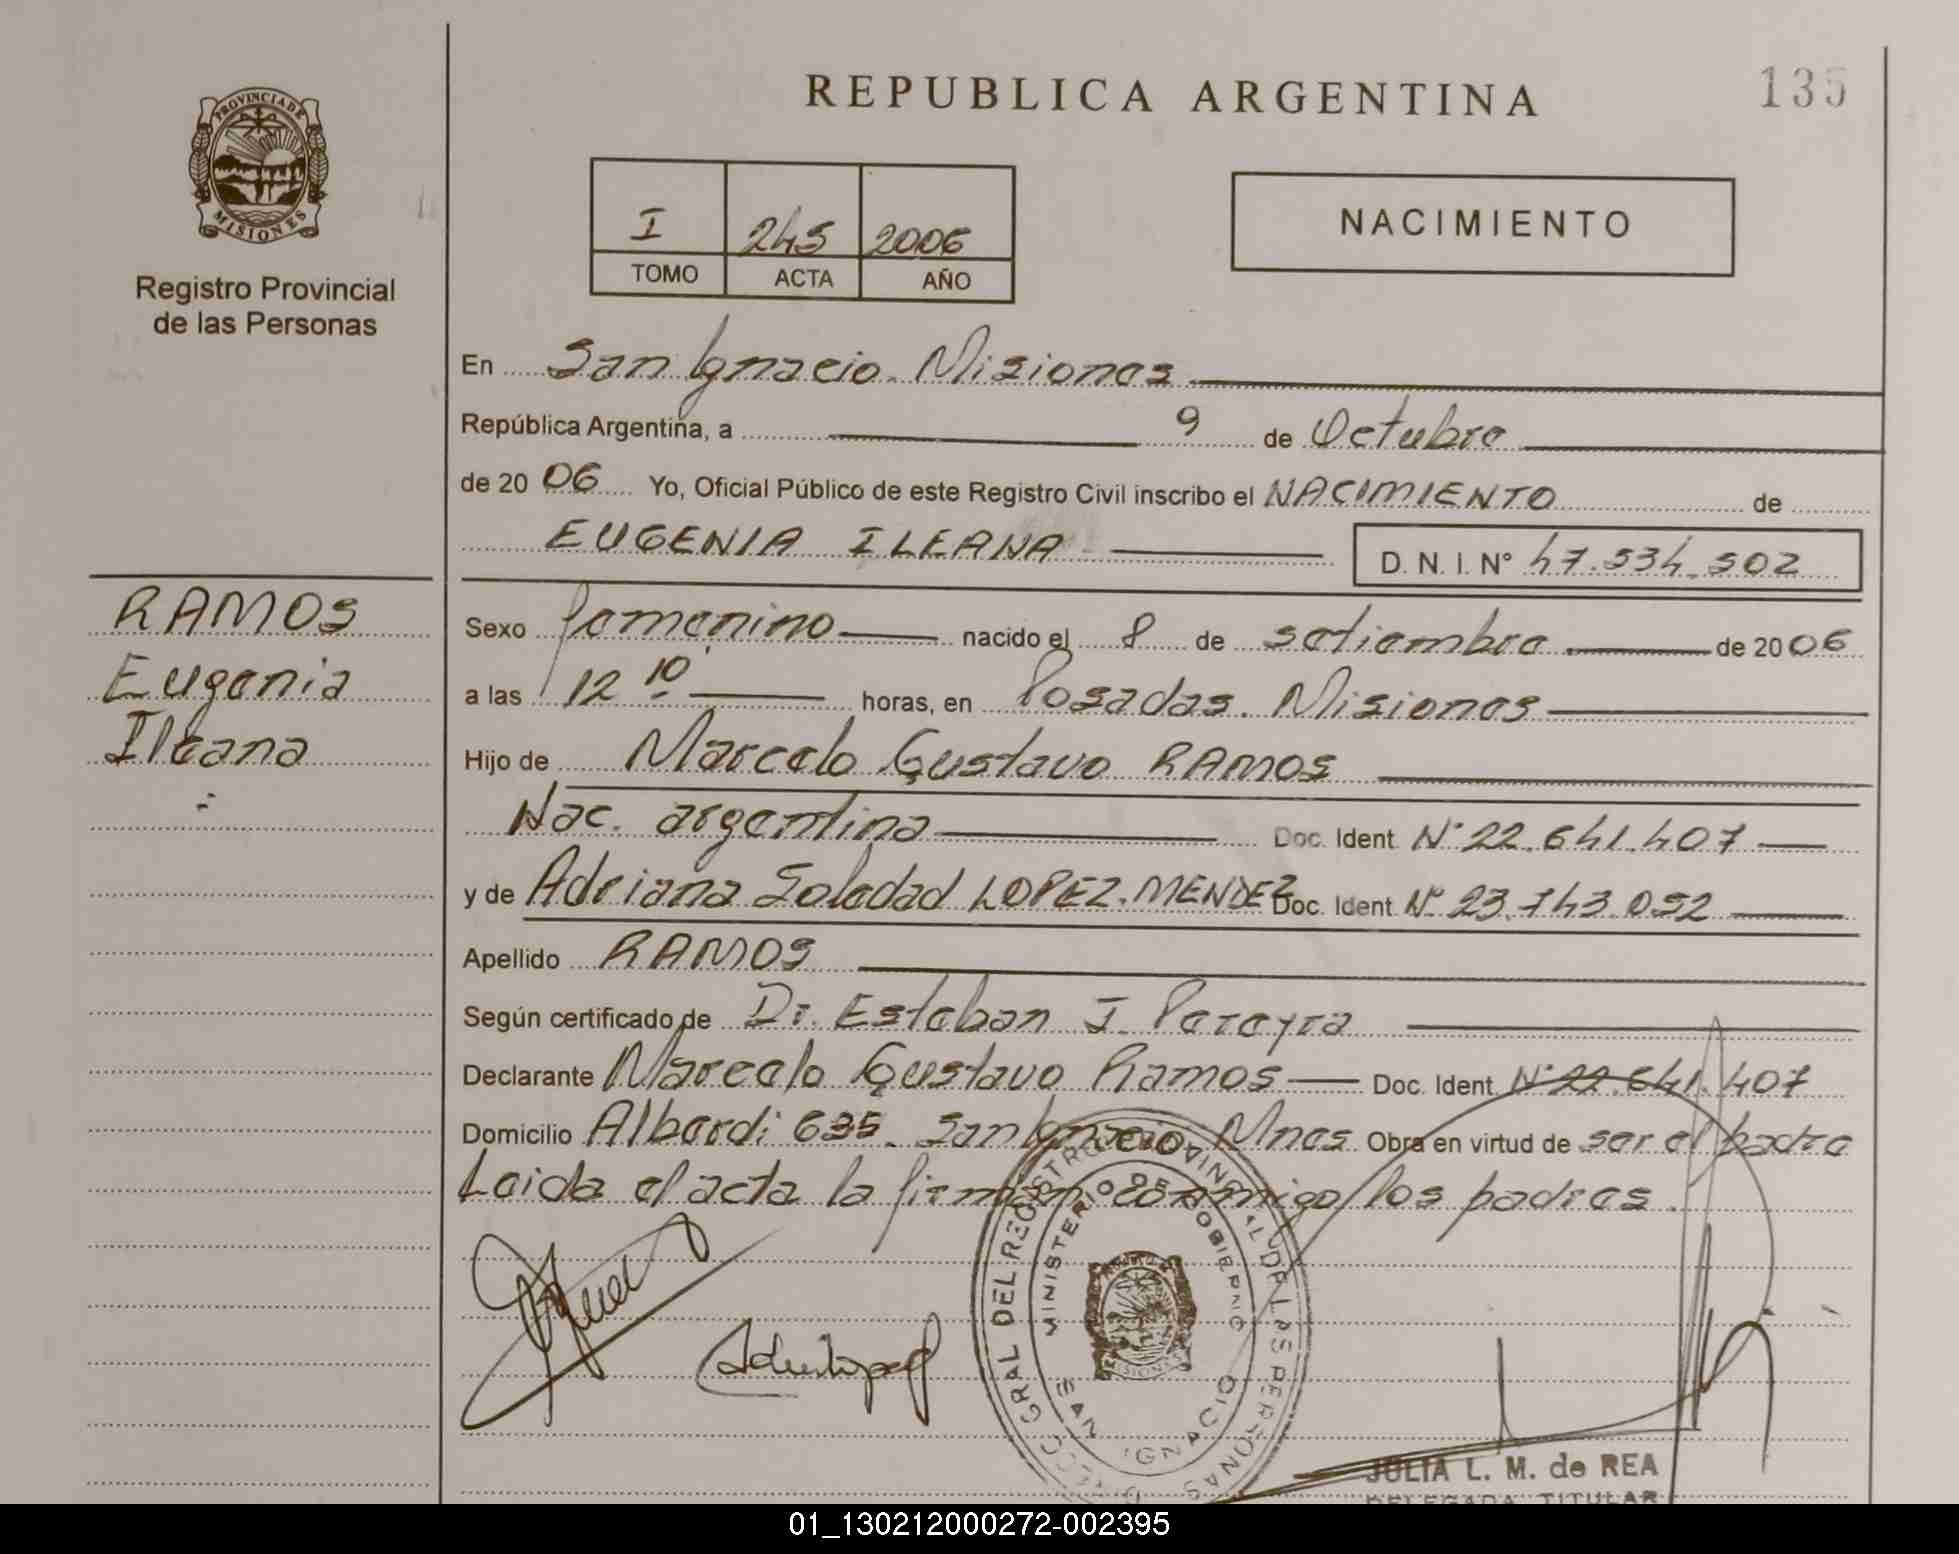 REPUBLICA ARGENTINA
135
PROVINCIA DE
MISIONES
Registro Provincial
de las Personas
I 245 2006
TOMO ACTA AÑO
NACIMIENTO
En San Ignacio. Misiones
República Argentina, a 9 de Octubre
de 20 06 Yo, Oficial Público de este Registro Civil inscribo el NACIMIENTO de
EUGENIA ILEANA D. N. I. N° 47.534.502
RAMOS
Eugenia
Ileana
Sexo femenino nacido el 8 de setiembre de 20 06
a las 12 10 horas, en Posadas. Misiones
Hijo de Marcelo Gustavo RAMOS
Nac. argentina Doc. Ident. N° 22.641.407
y de Adriana Soledad LOPEZ.MENDEZ Doc. Ident. N° 23.743.052
Apellido RAMOS
Según certificado de Dr. Esteban J. Pereyra
Declarante Marcelo Gustavo Ramos Doc. Ident. N° 22.641.407
Domicilio Alberdi 635. San Ignacio Mnes Obra en virtud de ser el padre
Leida el acta la firman conmigo los padres.
GRAL DEL REGISTRO PROVINCIAL DE LAS PERSONAS
MINISTERIO DE GOBIERNO
SAN IGNACIO
MISIONES
JULIA L. M. de REA
DELEGADA TITULAR
01_130212000272-002395